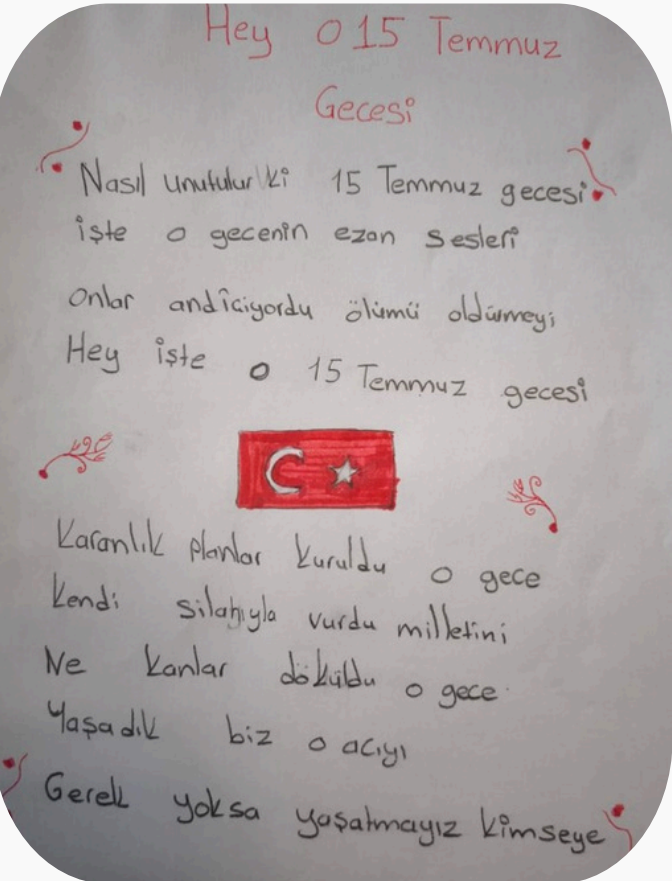 Hey O 15 Temmuz
Gecesi
Nasıl unutulur ki 15 Temmuz gecesi
işte o gecenin ezan sesleri
Onlar andiciyordu ölümü oldürmeyi
Hey işte o 15 Temmuz gecesi
Karanlık planlar kuruldu o gece
Kendi silahıyla vurdu milletini
Ne kanlar döküldu o gece
Yaşadık biz o acıyı
Gerek yoksa yaşatmayız kimseye